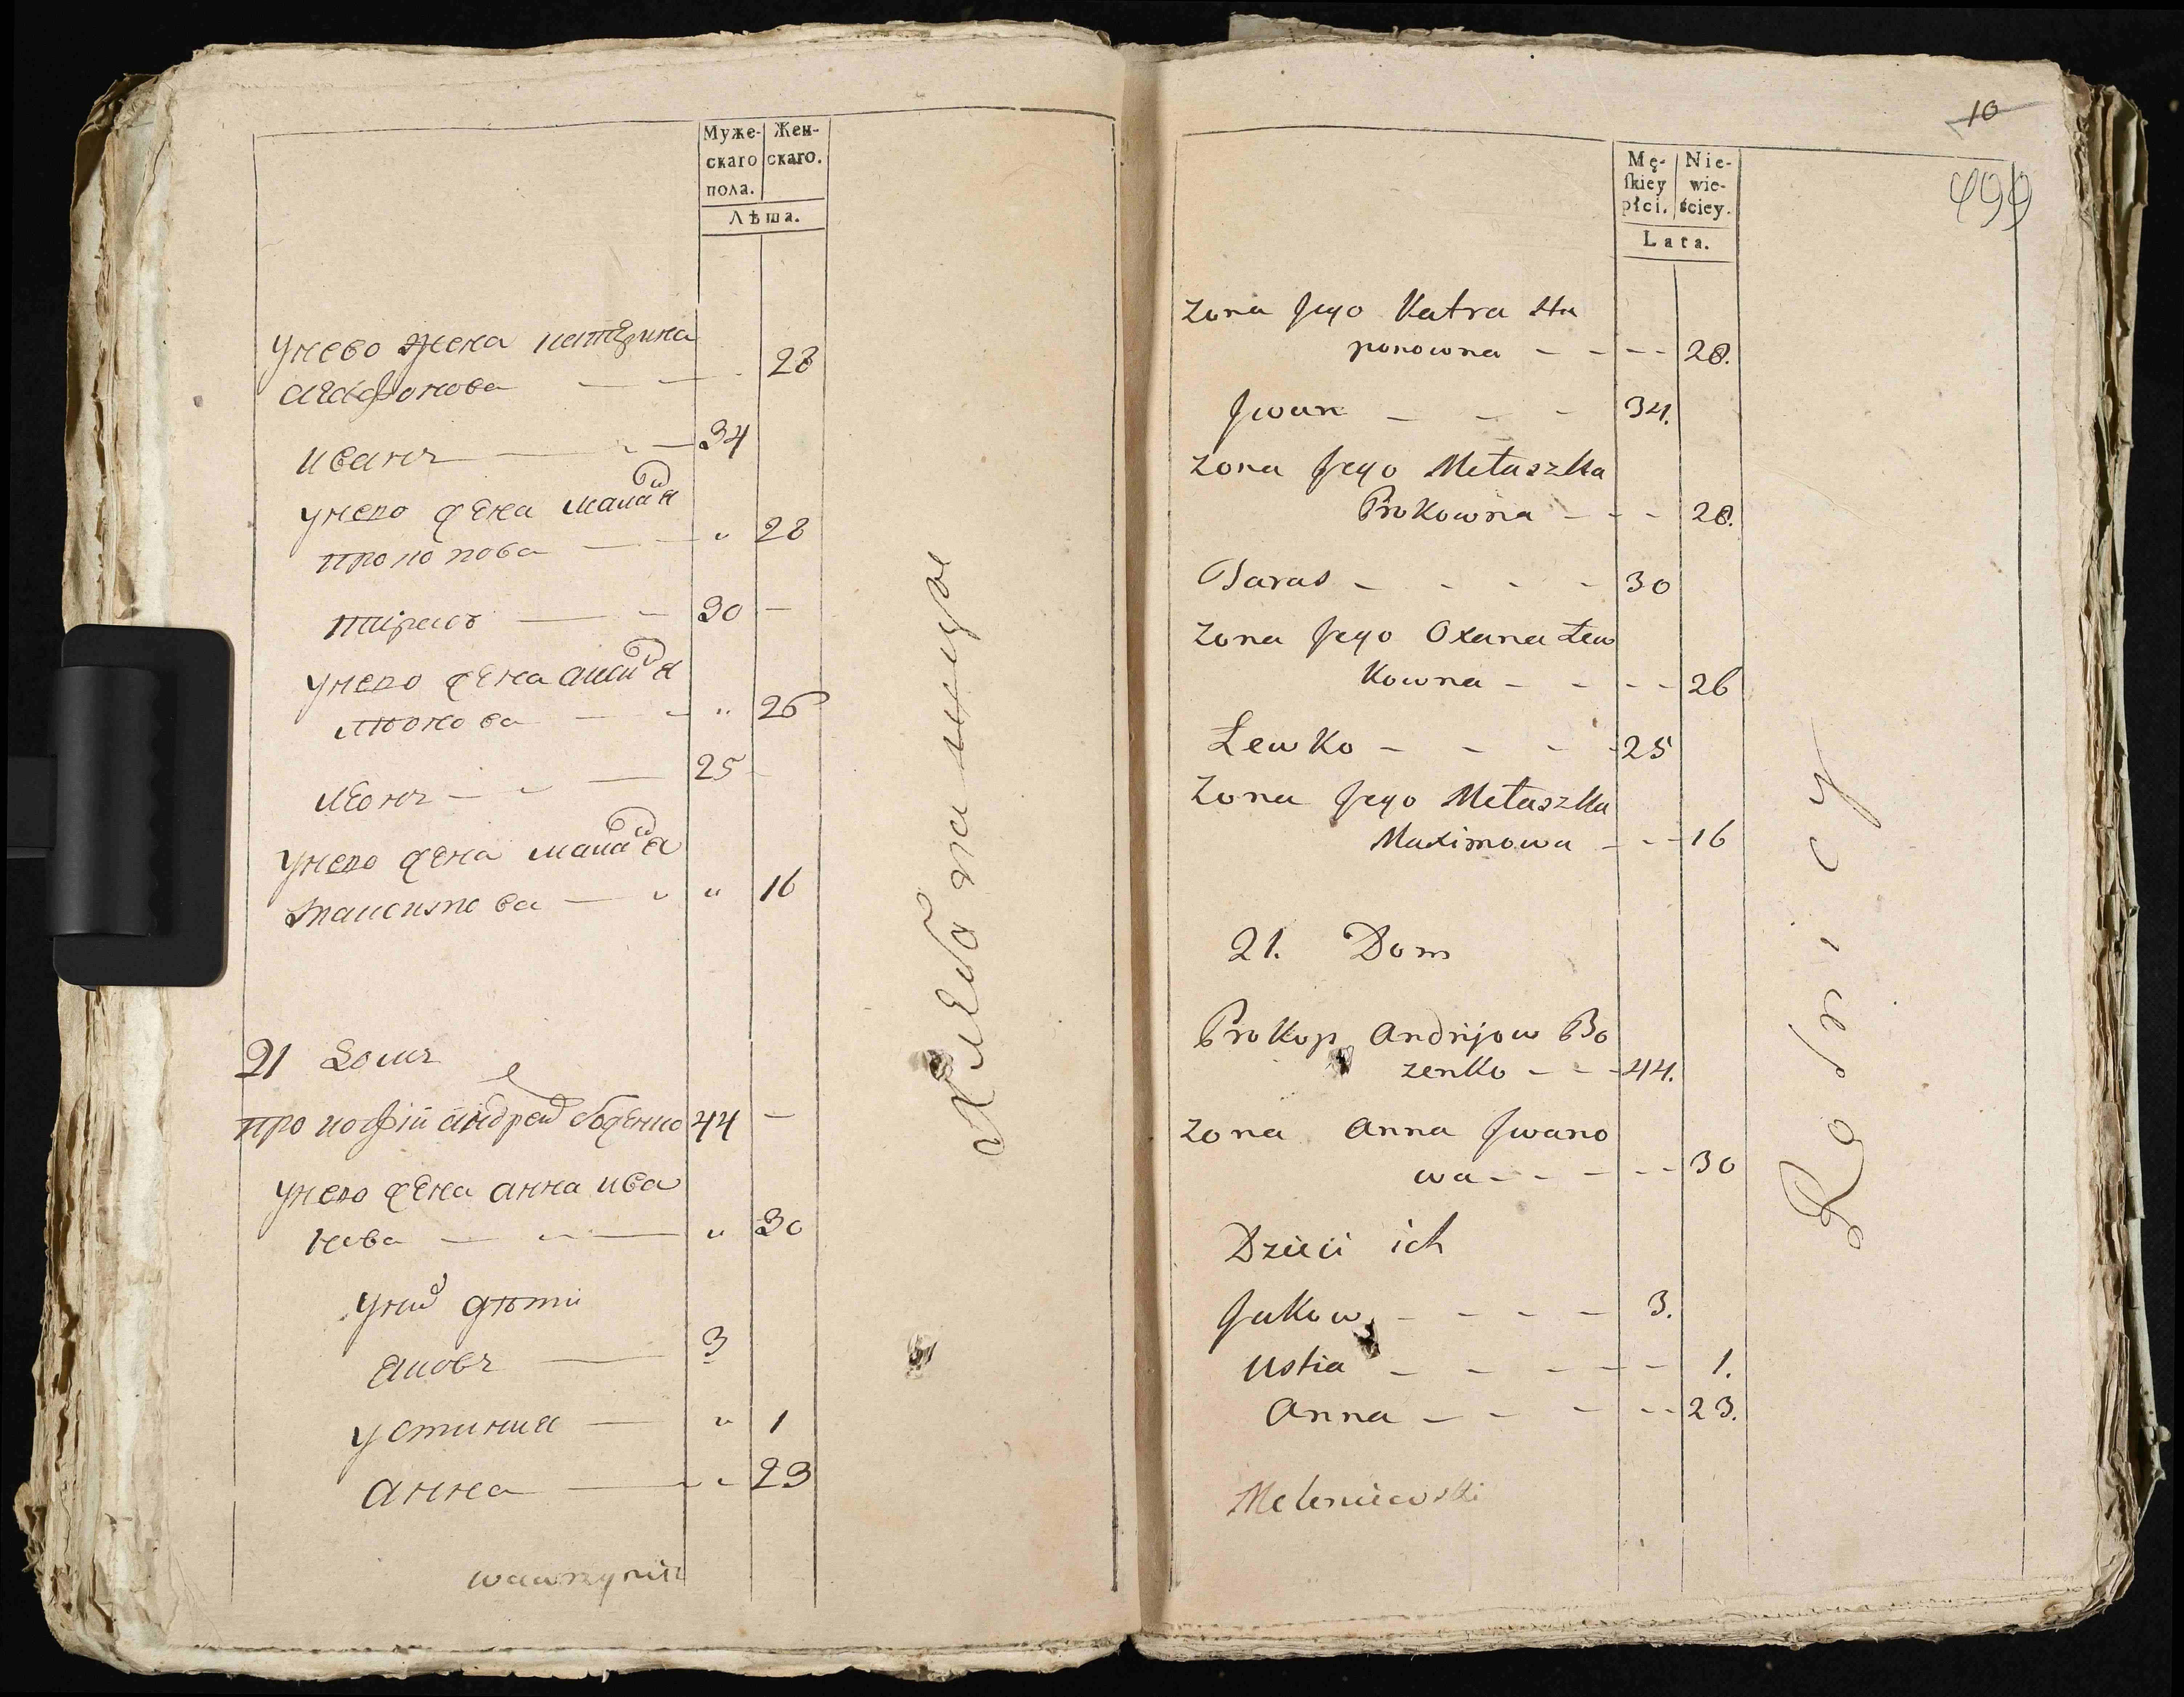 Муже- Жен-
скаго скаго.
пола.
Лѣта.
Унево жена катерина
агафонова — — 28
иванъ — — 34
унево жена
прокопова — — " 28
тарасъ — — 30 —
унево жена
лѣонова — — " 26
леонъ — — 25
унево жена
максимова — " " 16
21 домъ
прокофій андреев боженко 44 —
унево жена анна ива
нова — — " 30
уних дѣти
яковъ — 3
устиния — " 1
анна — " 23
wawrzyniec
Хлебопашцы
10
499
Mę- Nie-
ſkiey wie-
płci. ściey.
Lata.
Zona Jego Katra Ha
ponowna - - - - 28.
Jwan - - - 34.
Zona Jego Mełaszka
Prokowna - - - 28.
Taras - - - - 30
Zona Jego Oxana Lew
kowna - - - - 26
Lewko - - - - 25
Zona Jego Mełaszka
Maximowa - - - 16
21. Dom
Prokop Andrijow Bo
zenko - - - 44.
Zona Anna Jwano
wa - - - - - 30
Dzieci ich
Jakow - - - - 3.
Ustia - - - - - - 1.
Anna - - - - - 23.
Meleniewski
Rolnicy